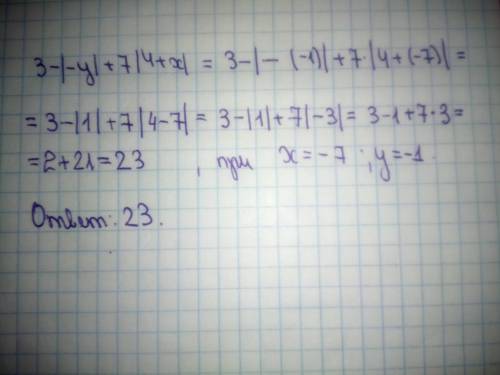 3-|-y|+7|4+x| = 3-|-(-1)|+7·|4+(-7)|=
=3-|1|+7|4-7|= 3-|1|+7|-3|= 3-1+7·3=
=2+21=23 , при x=-7 ; y=-1.
Ответ: 23.